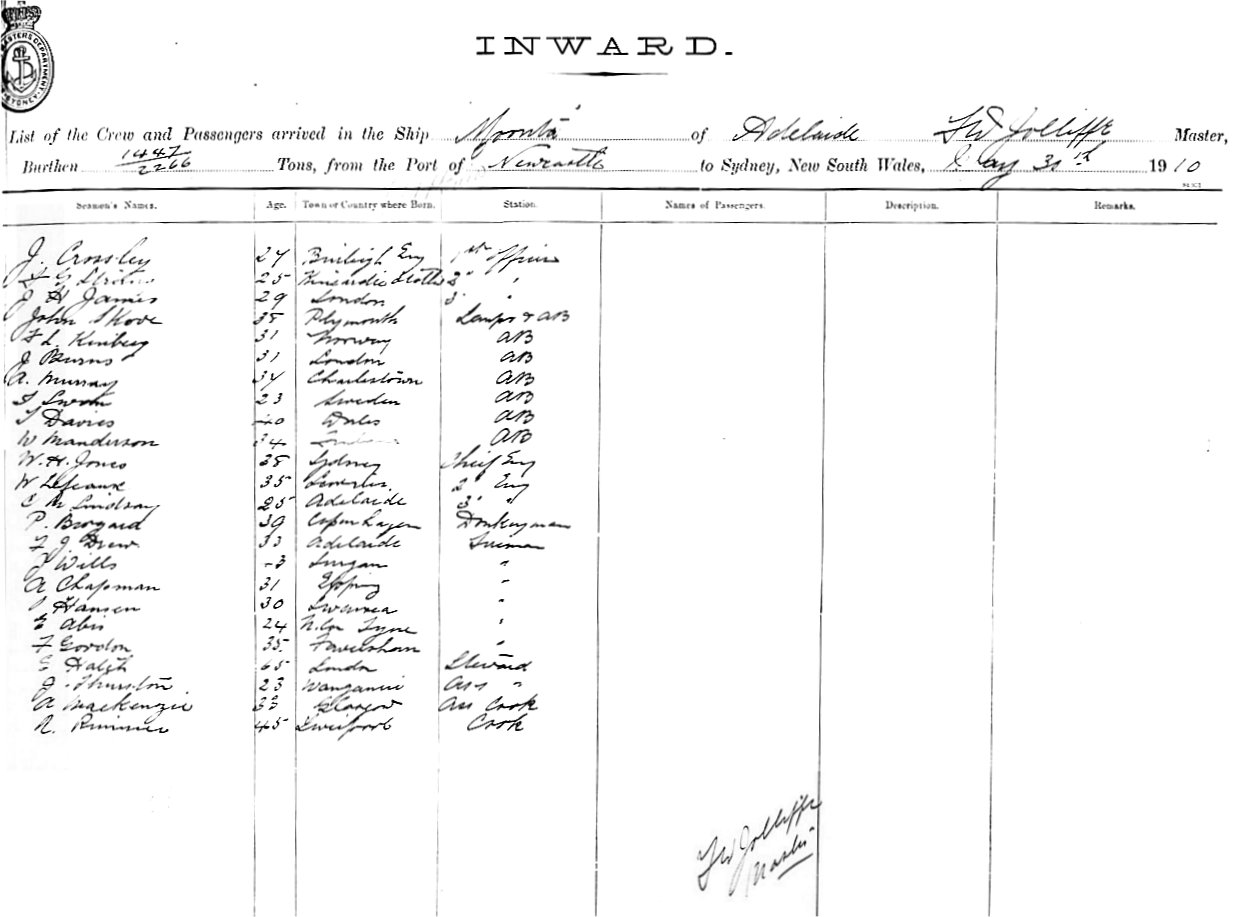 MASTERS DEPARTMENT
SYDNEY
INWARD.
List of the Crew and Passengers arrived in the Ship Moonta of Adelaide F W Jolliffe Master,
Burthen 1447/2266 Tons, from the Port of Newcastle to Sydney, New South Wales, May 31st 1910
Seamen's Names. Age. Town or Country where Born. Station. Names of Passengers. Description. Remarks.
J. Crossley 27 Eng 1st Officer
25 2" "
J H James 29 London 3" "
John Skove 38 Plymouth Lamps & AB
F L. Kinberg 31 Norway AB
J Burns 31 London AB
A. Murray 34 Charlestown AB
23 Sweden AB
T Davies Wales AB
W Manderson 34 AB
W. H. Jones 38 Sydney Chief Eng
W 35 2" Eng
C M Lindsay 25 Adelaide 3" "
P. Brogard 39 Copenhagen Donkeyman
F J. Drew 33 Adelaide Fireman
J Wills Lurgan "
A Chapman 31 Epping "
Hansen 30 Swansea "
E Abis 24 N. on Tyne "
F Gordon 35 Faversham "
E 65 London Steward
J. Thurston 23 Wanganui Ass "
A Mackenzie 33 Glasgow Ass Cook
R. Rimmer 45 Liverpool Cook
F W Jolliffe
Master